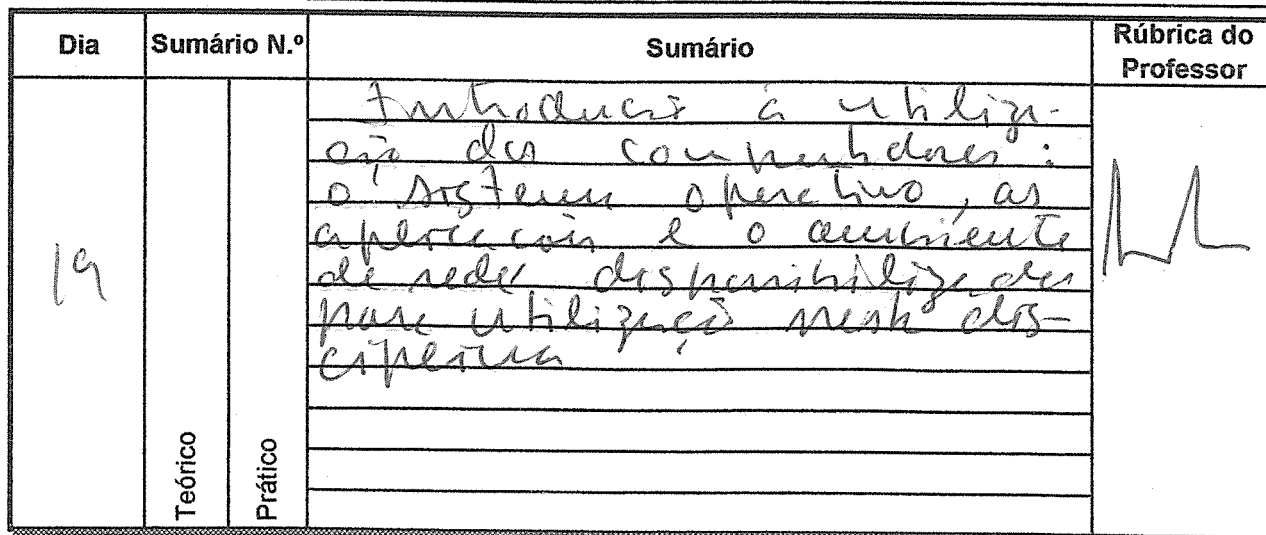 Dia Sumário N.º Sumário Rúbrica do Professor
Introdução à utiliza-
ção dos computadores:
o sistema operativo, as
aplicações e o ambiente
de rede disponibilizados
para utilização nesta dis-
ciplina
19
Teórico
Prático